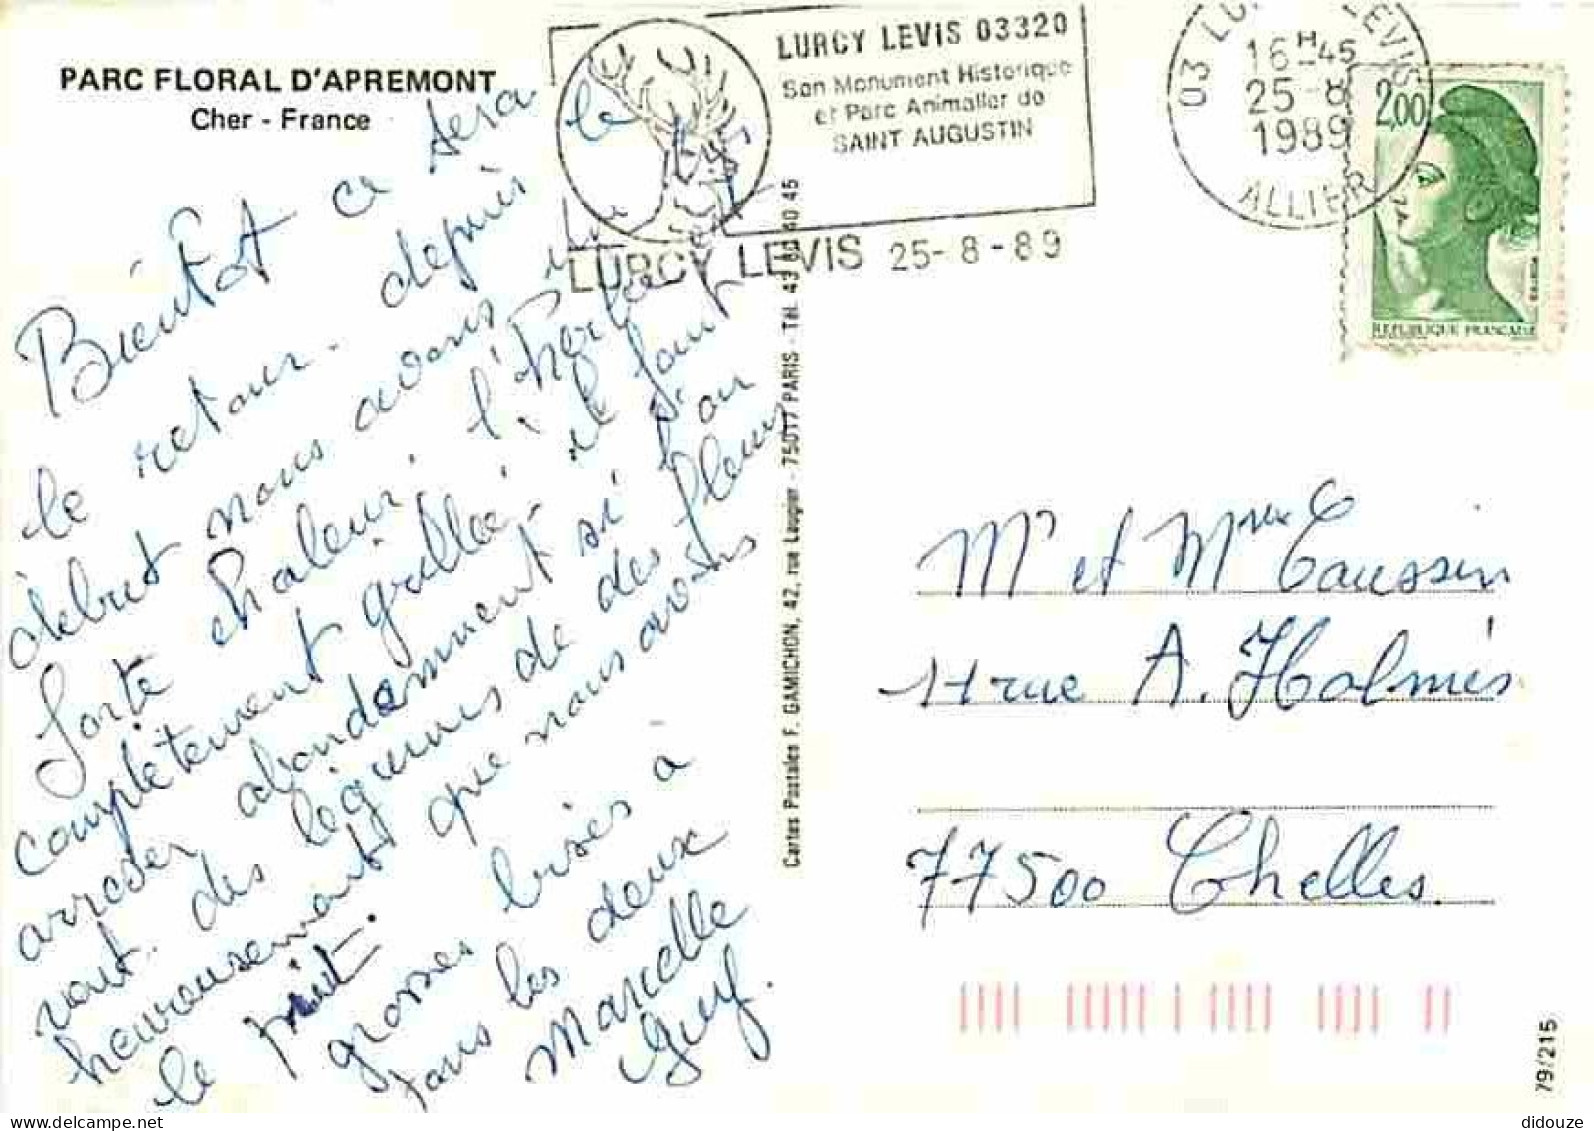 PARC FLORAL D'APREMONT
Cher - France
LURCY LEVIS 03320
Son Monument Historique
et Parc Animalier de
SAINT AUGUSTIN
LURCY LEVIS 25-8-89
03 LURCY LEVIS
16H45
25-8
1989
ALLIER
2,00
REPUBLIQUE FRANCAISE
Bientôt ce sera le
le retour. depuis le
début nous avons une
forte chaleur, l'herbe
complètement grillée, il faut
arroser abondamment si l'on
veut des légumes de des fleurs
heureusement que nous avons
le puit.
grosses bises à
tous les deux
Marcelle
Guy.
Cartes Postales F. GAMICHON, 42, rue Laugier - 75017 PARIS - Tél. 43 80 40 45
Mr et Mme Caussin
11 rue A. Holmès
77500 Chelles.
79/215
didouze